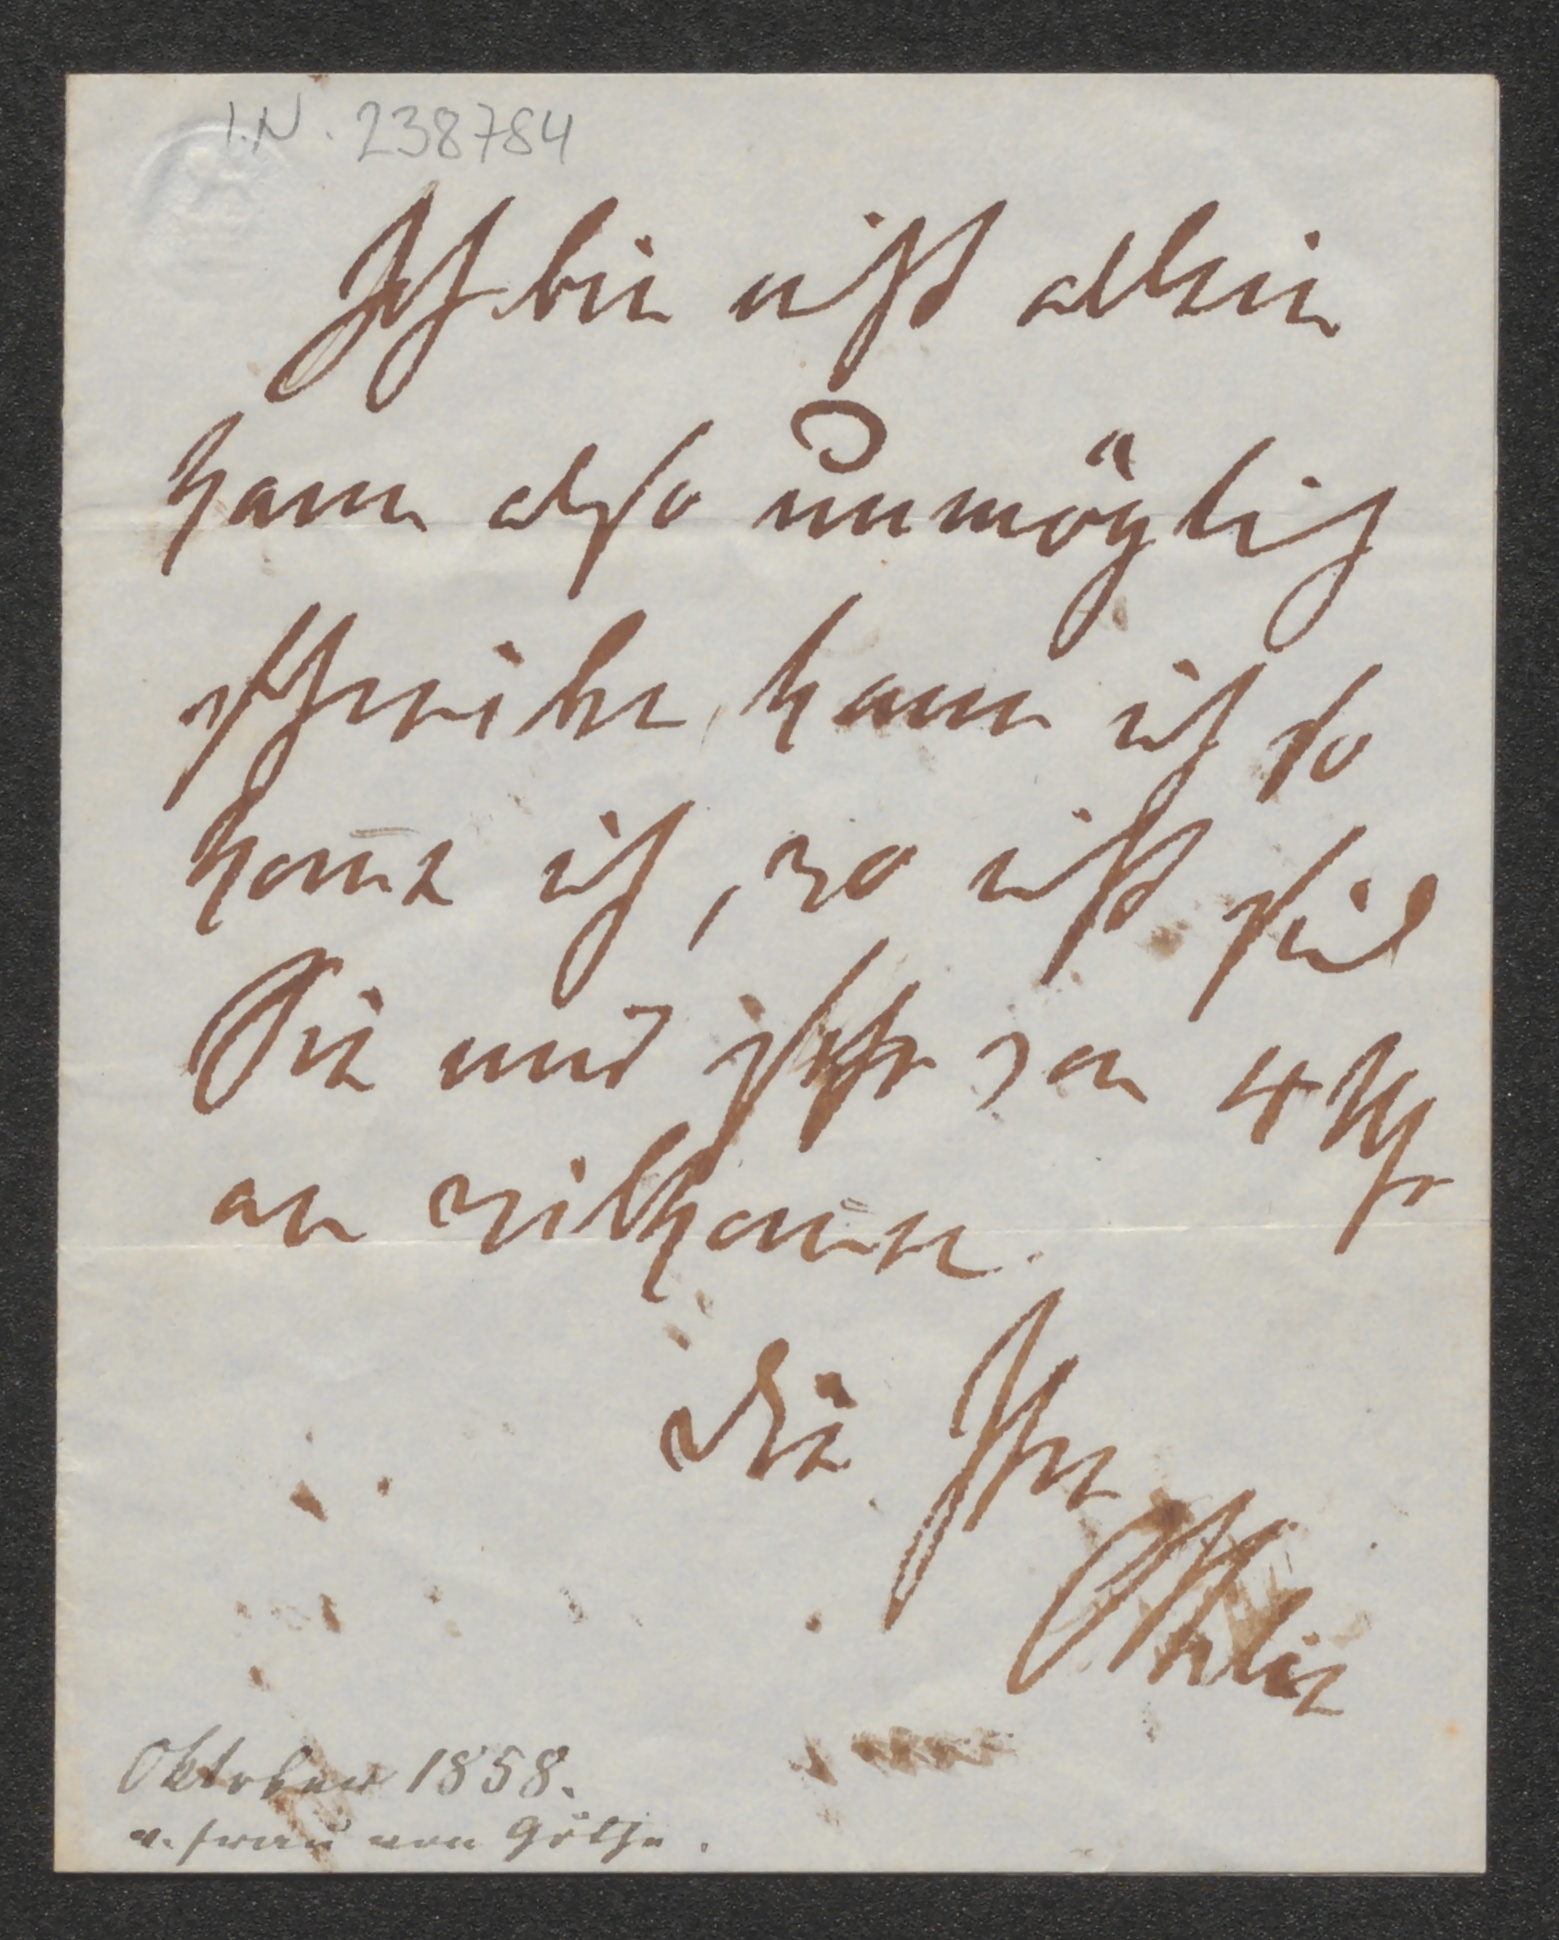 I.N. 238784
Ich bin nicht allein
kann also unmöglich
schreiben, kann ich so
kome ich, wo nicht sind
Sie mir sehr von 4 Uhr
an willkomen.
Die Ihre
Ottilie
Oktober 1858.
v. Frau von Göthe.